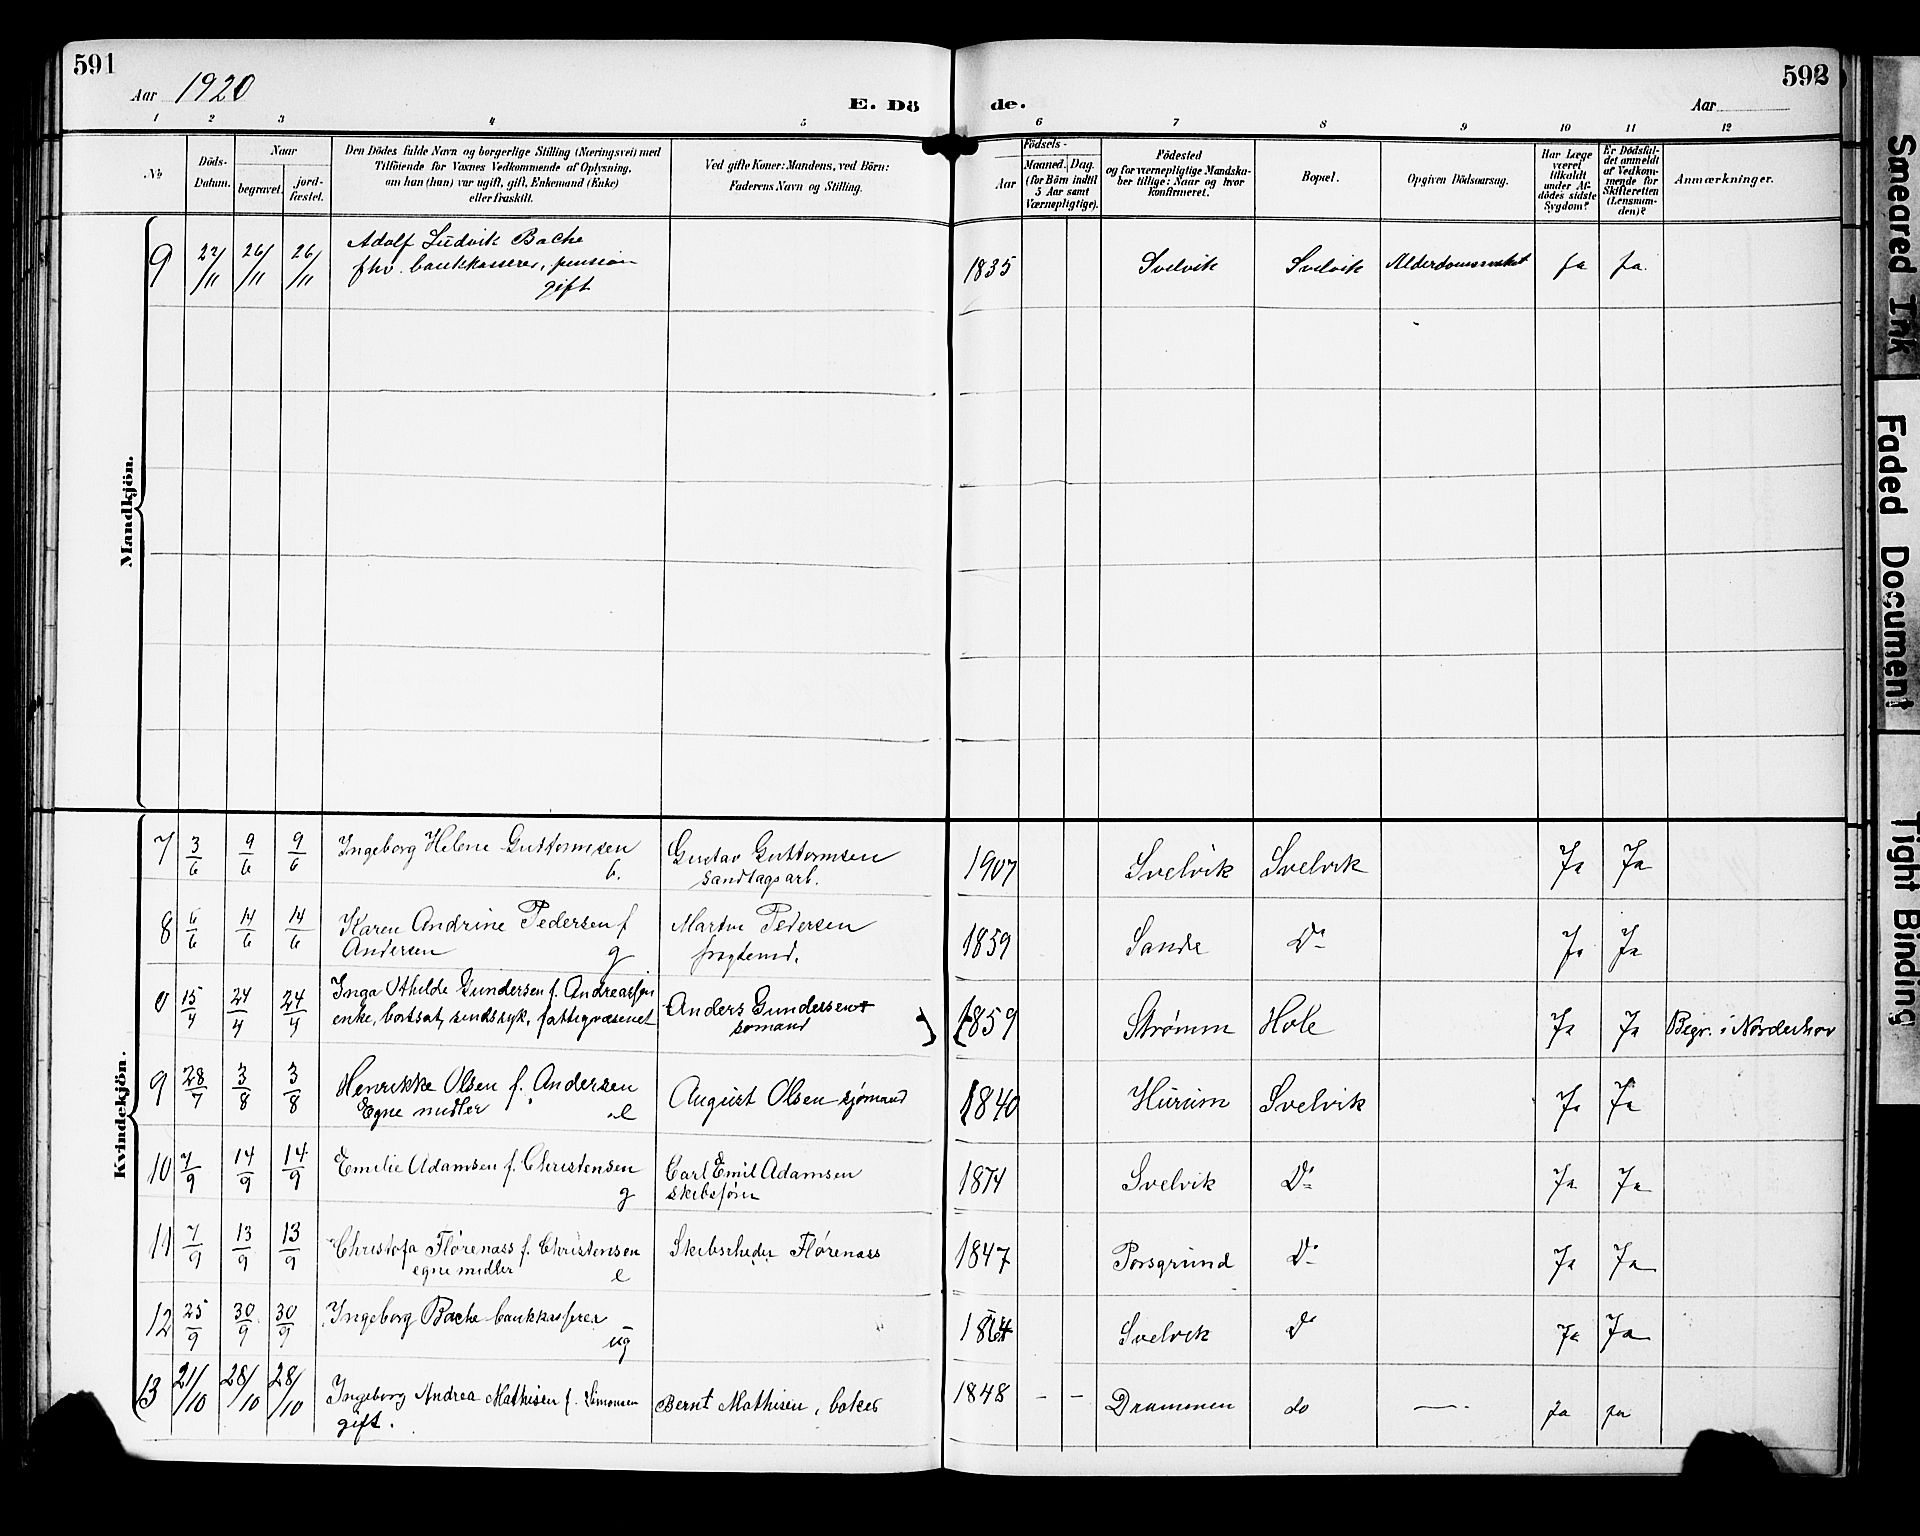 591
592
Aar 1920
E. Dö
de.
Aar
1 2 3 4 5 6 7 8 9 10 11 12
No
Döds-
Datum.
Naar
begravet.
jord-
fæstet.
Den Dödes fulde Navn og borgerlige Stilling (Næringsvei) med
Tilföiende for Voxnes Vedkommende af Oplysning,
om han (hun) var ugift, gift, Enkemand (Enke)
eller fraskilt.
Ved gifte Koner: Mandens, ved Börn:
Faderens Navn og Stilling.
Födsels-
Aar
Maaned.
Dag.
(for Börn indtil
5 Aar samt
Værnepligtige).
Födested
og for værnepligtige Mandska-
ber tillige: Naar og hvor
konfirmeret.
Bopæl.
Opgiven Dödsaarsag.
Har Læge
været
tilkaldt
under Af-
dödes sidste
Sygdom?
Er Dödsfal-
det anmeldt
af Vedkom-
mende for
Skifteretten
(Lensman-
den)?
Anmærkninger.
Mandkjön.
9 22/11 26/11 26/11 Adolf Ludvik Bache
fhv. bankkasserer, pension
gift
1835 Svelvik Svelvik Alderdomssvakhet ja ja.
Kvindekjön.
7 3/6 9/6 9/6 Ingeborg Helene Guttormsen
b.
Gustav Guttormsen
sandtagsarb.
1907 Svelvik Svelvik Ja Ja
8 6/6 14/6 14/6 Karen Andrine Pedersen f
Andersen g
Martin Pedersen
fragtemd.
1859 Sande Do Ja Ja
15/4 24/4 24/4 Inga Othilde Gundersen f. Andreassen
enke, bortsat, sindssyk, fattigvæsenet
Anders Gundersen
sømand
1859 Strømm Hole Ja Ja Begr. i Norderhov
9 28/7 3/8 3/8 Henrikke Olsen f. Andersen
Egne midler e
August Olsen sjømand
1840 Hurum Svelvik Ja Ja
10 7/9 14/9 14/9 Emilie Adamsen f. Christensen
g
Carl Emil Adamsen
skibsfører
1874 Svelvik Do Ja Ja
11 7/9 13/9 13/9 Christofa Flørenass f. Christensen
egne midler e
Skibsrheder Flørenass
1847 Porsgrund Do Ja Ja
12 25/9 30/9 30/9 Ingeborg Bache bankkasserer
ug
1864 Svelvik Do Ja Ja
13 21/10 28/10 28/10 Ingeborg Andrea Mathisen f. Simonsen
gift.
Bernt Mathisen, baker
1848 - - Drammen do — ja ja
Smeared Ink
Faded Document
Tight Binding